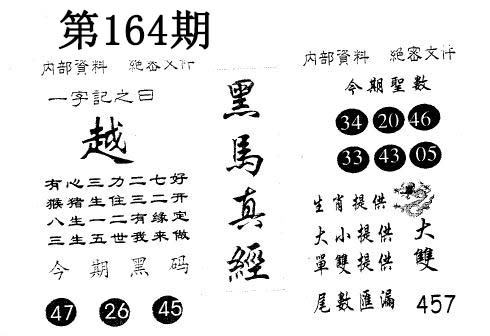 第164期
内部資料 絕密文件
一字記之曰
越
有心三力二七好
猴猪生住三二开
八生一二有缘定
三生五世我來做
今期黑码
47 26 45
黑馬真經
内部資料 絕密文件
今期聖數
34 20 46
33 43 05
生肖提供
大小提供 大
單雙提供 雙
尾數匯漏 457